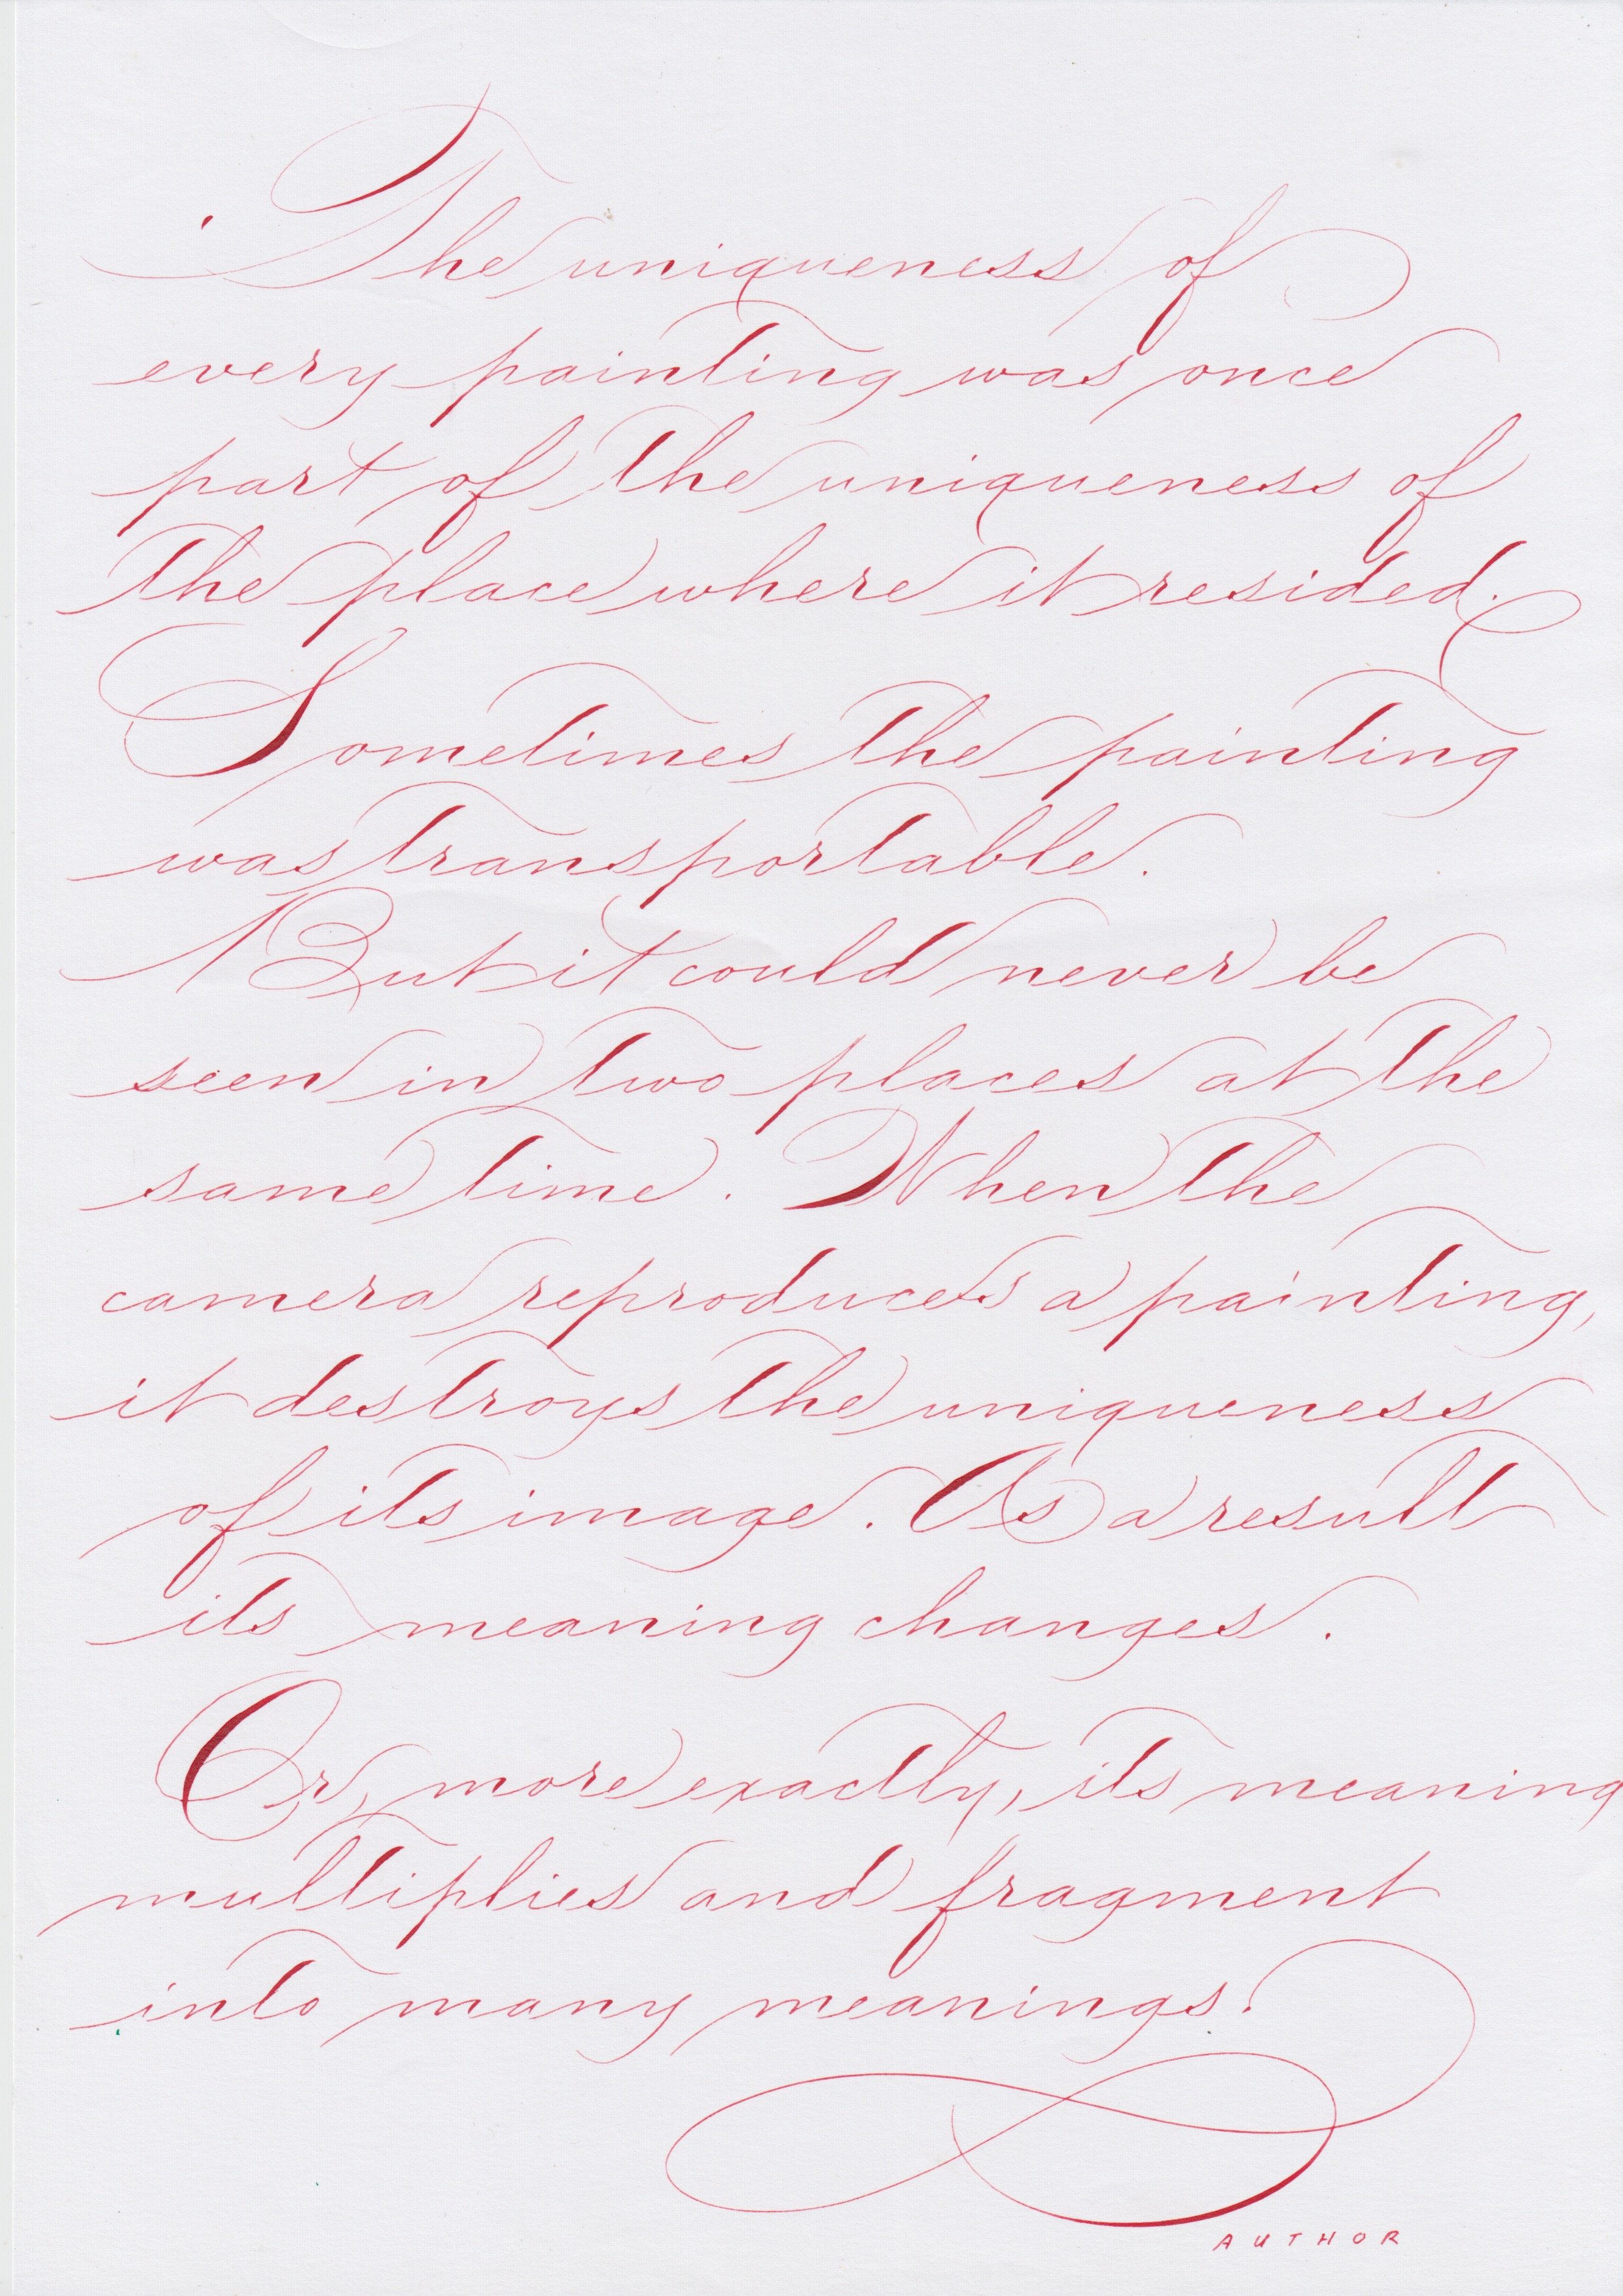 The uniqueness of
every painting was once
part of the uniqueness of
the place where it resided.
Sometimes the painting
was transportable.
But it could never be
seen in two places at the
same time. When the
camera reproduces a painting,
it destroys the uniqueness
of its image. As a result
its meaning changes.
Or, more exactly, its meaning
multiplies and fragment
into many meanings.
AUTHOR